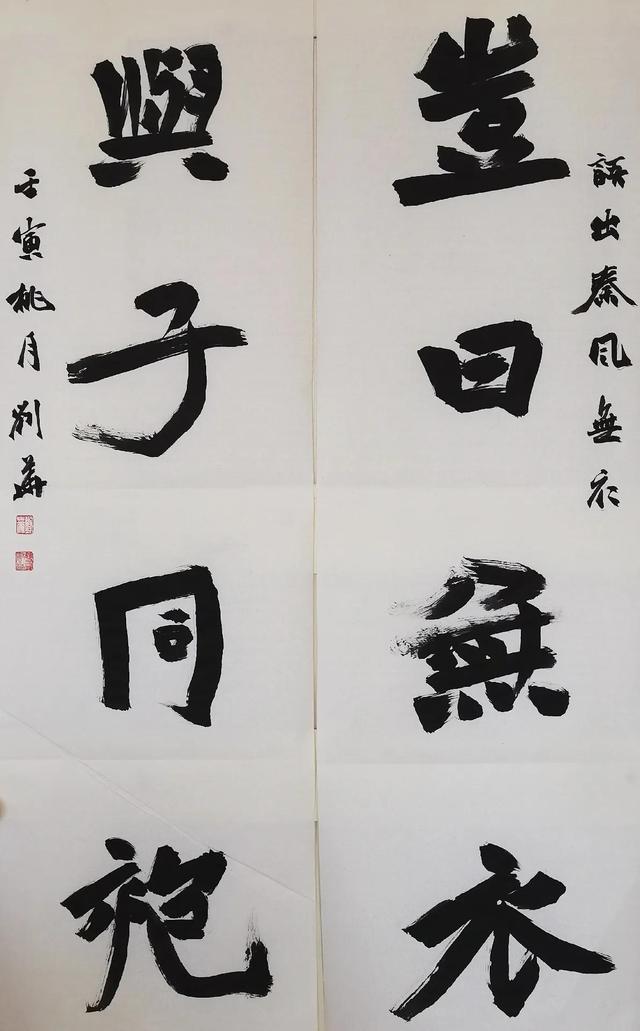 語出秦風無衣
豈曰無衣
與子同袍
壬寅桃月劉華